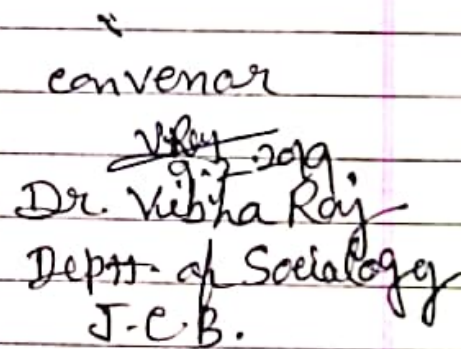 convenor
V.Ray
9.2.2019
Dr. Vibha Ray
Deptt. of Sociology
J.C.B.